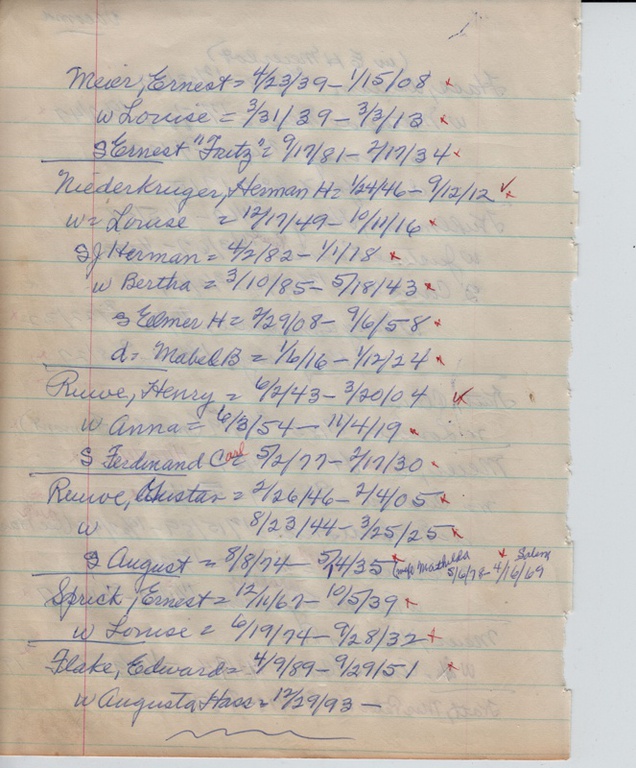 Meier, Ernest = 4/23/39 - 1/15/08 x
w Louise = 3/31/39 - 3/3/13 x
S Ernest "Fritz" = 9/17/81 - 2/17/34 x
Niederkruger, Herman H = 1/24/46 - 9/12/12 x
w = Louise = 12/17/49 - 10/11/16 x
S J Herman = 4/2/82 - 1/1/18 x
w Bertha = 3/10/85 - 5/18/43 x
s Elmer H = 2/29/08 - 9/6/58 x
d = Mabel B = 1/6/16 - 1/12/24 x
Ruwe, Henry = 6/2/43 - 3/20/04 x
w Anna = 6/3/54 - 11/4/19 x
S Ferdinand Carl 5/2/77 - 2/17/30 x
Ruwe, Gustav = 2/26/46 - 2/4/05 x
w 8/23/44 - 3/25/25 x
S August = 8/8/74 - 5/4/35 x (wife Mathilda x Salem
5/6/78 - 4/16/69
Sprick, Ernest = 12/11/67 - 10/5/39 x
w Louise = 6/19/74 - 9/28/32 x
Flake, Edward = 4/9/89 - 9/29/51 x
w Augusta Hass = 12/29/93 -